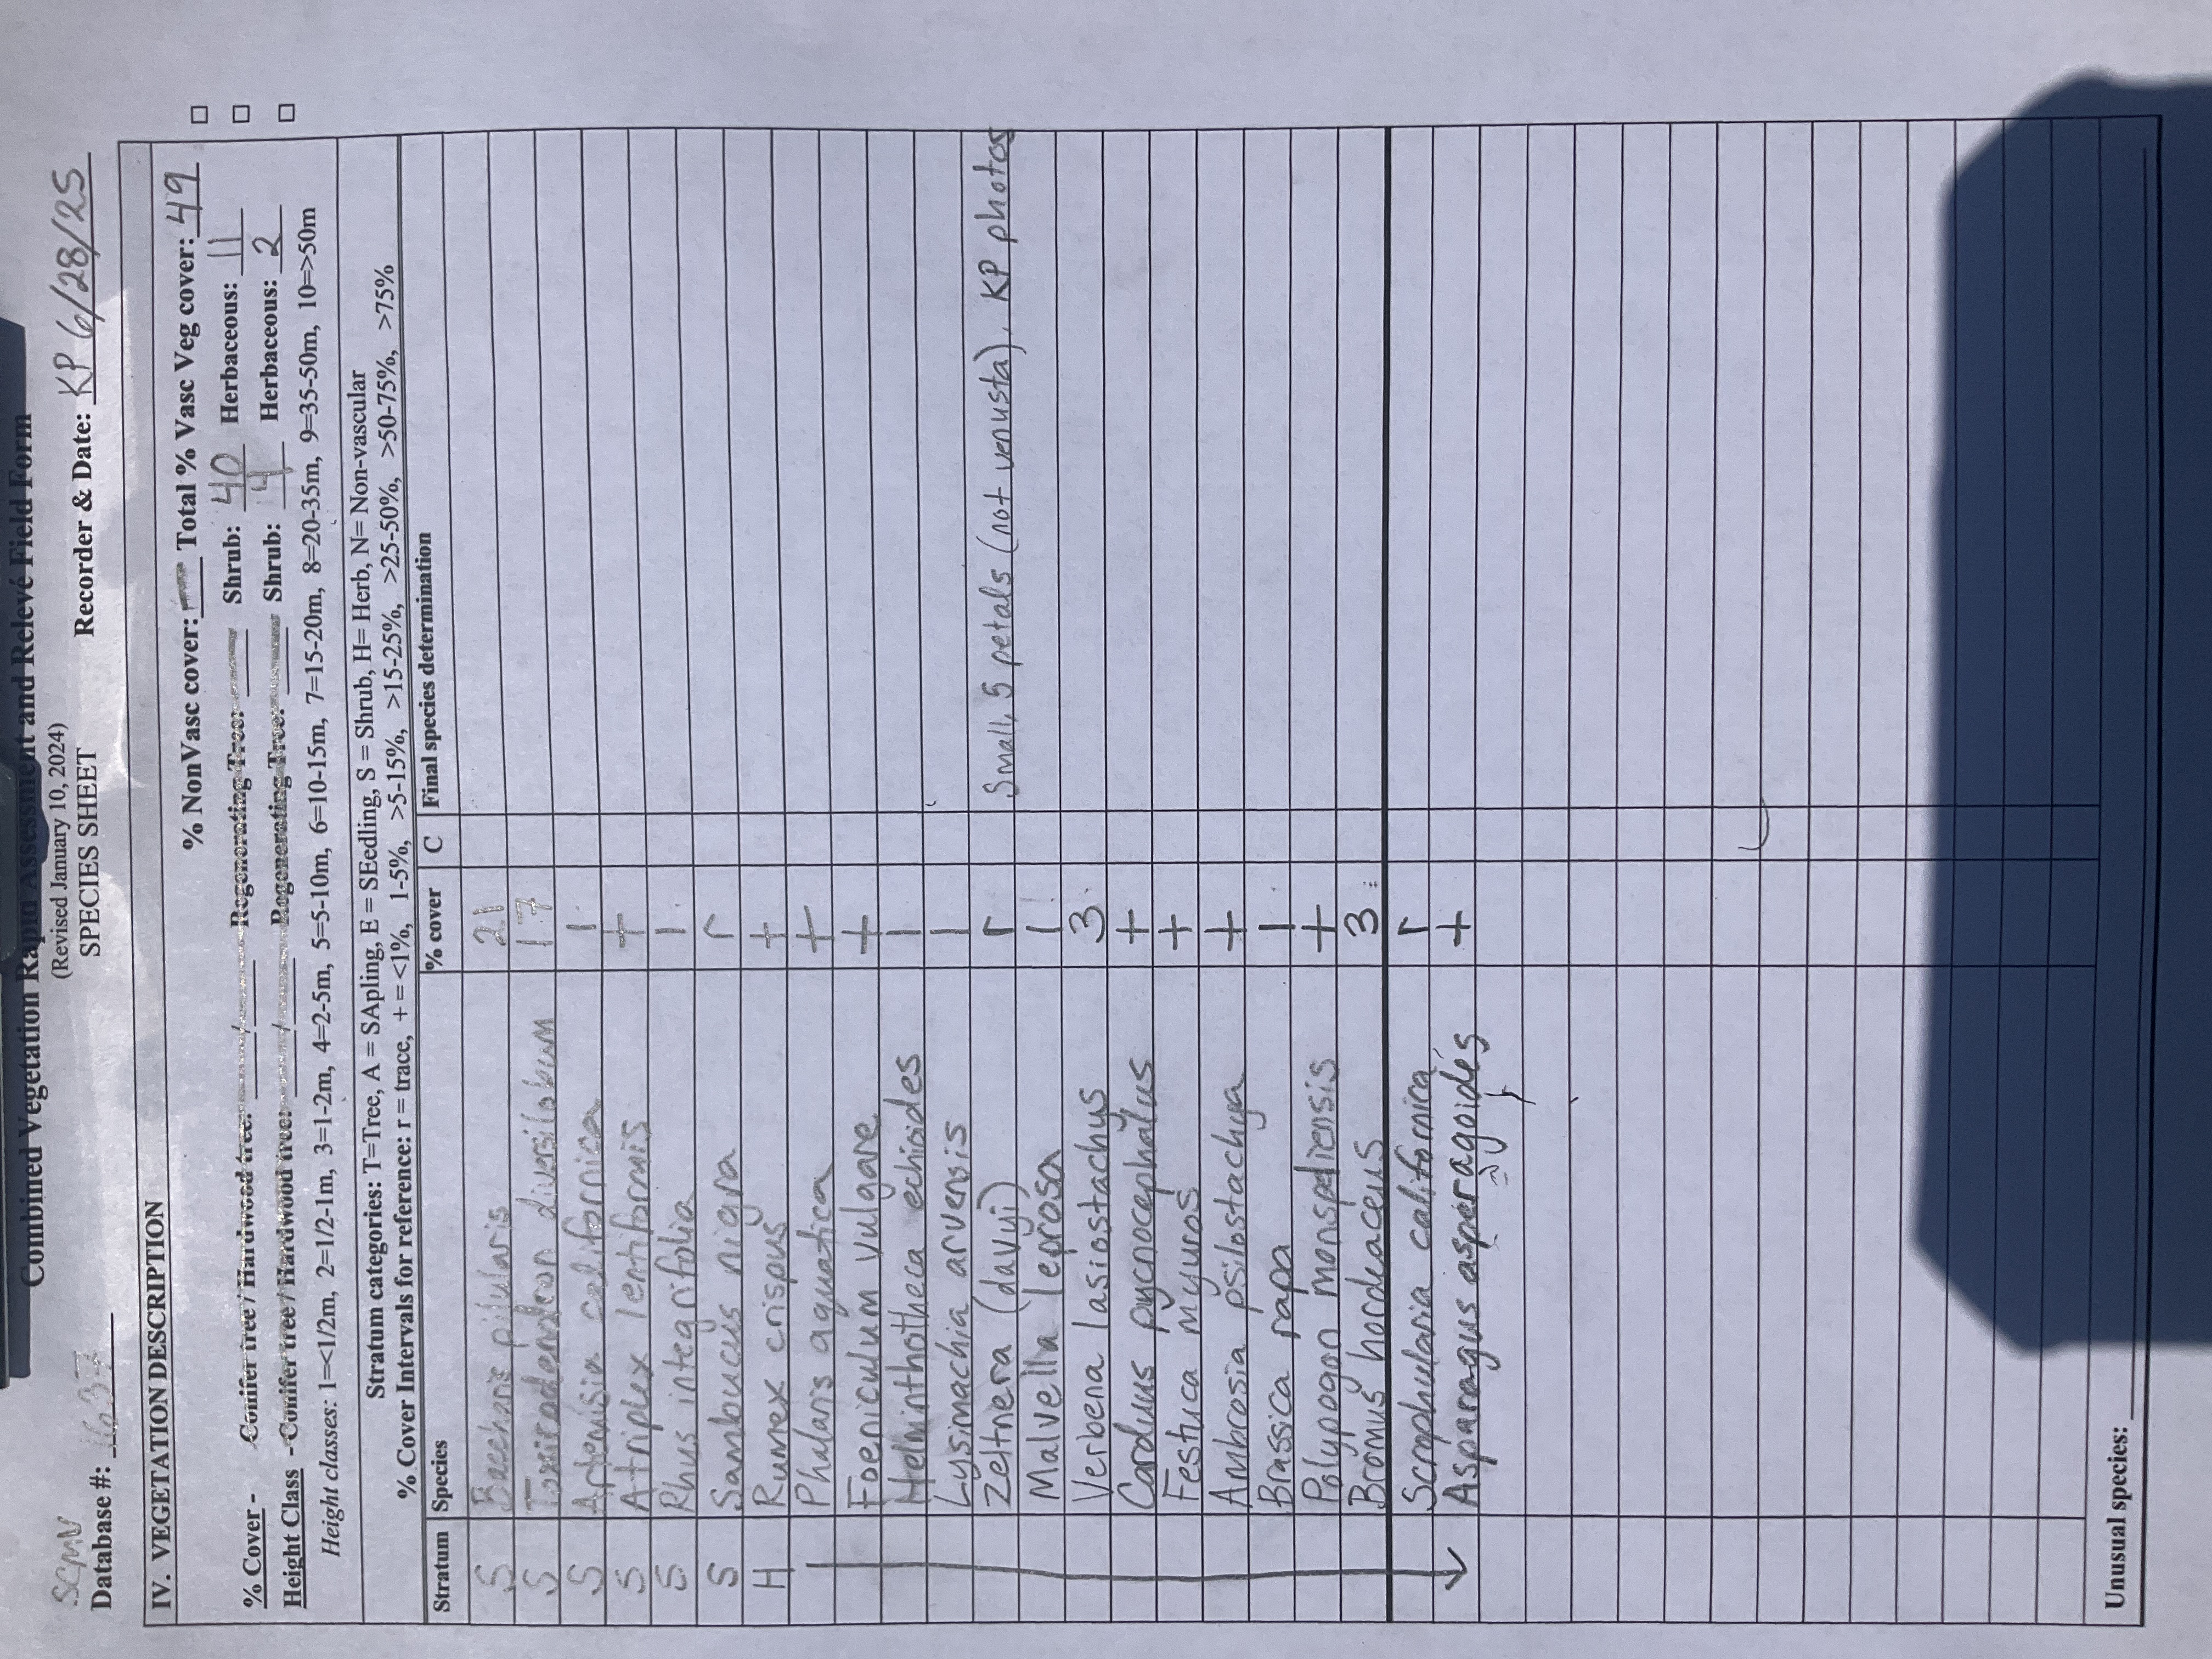 Combined Vegetation Rapid Assessment and Relevé Field Form
(Revised January 10, 2024)
SCMN SPECIES SHEET
Database #: 1637 Recorder & Date: KP 6/28/25
IV. VEGETATION DESCRIPTION
% NonVasc cover: — Total % Vasc Veg cover: 49 □
% Cover - Conifer tree / Hardwood tree: / Regenerating Tree: Shrub: 40 Herbaceous: 11 □
Height Class - Conifer tree / Hardwood tree: / Regenerating Tree: Shrub: 4 Herbaceous: 2 □
Height classes: 1=<1/2m, 2=1/2-1m, 3=1-2m, 4=2-5m, 5=5-10m, 6=10-15m, 7=15-20m, 8=20-35m, 9=35-50m, 10=>50m
Stratum categories: T=Tree, A = SApling, E = SEedling, S = Shrub, H= Herb, N= Non-vascular
% Cover Intervals for reference: r = trace, + = <1%, 1-5%, >5-15%, >15-25%, >25-50%, >50-75%, >75%
Stratum Species % cover C Final species determination
S Baccharis pilularis 21
S Toxicodendron diversilobum 17
S Artemisia californica 1
S Atriplex lentiformis +
S Rhus integrifolia 1
S Sambucus nigra r
H Rumex crispus +
Phalaris aquatica +
Foeniculum vulgare +
Helminthotheca echioides 1
Lysimachia arvensis 1
Zeltnera (davyi) r Small, 5 petals (not venusta), KP photos
Malvella leprosa 1
Verbena lasiostachys 3
Carduus pycnocephalus +
Festuca myuros +
Ambrosia psilostachya +
Brassica rapa 1
Polypogon monspeliensis +
Bromus hordeaceus 3
Scrophularia californica r
Asparagus asperagoides +
a
Unusual species: